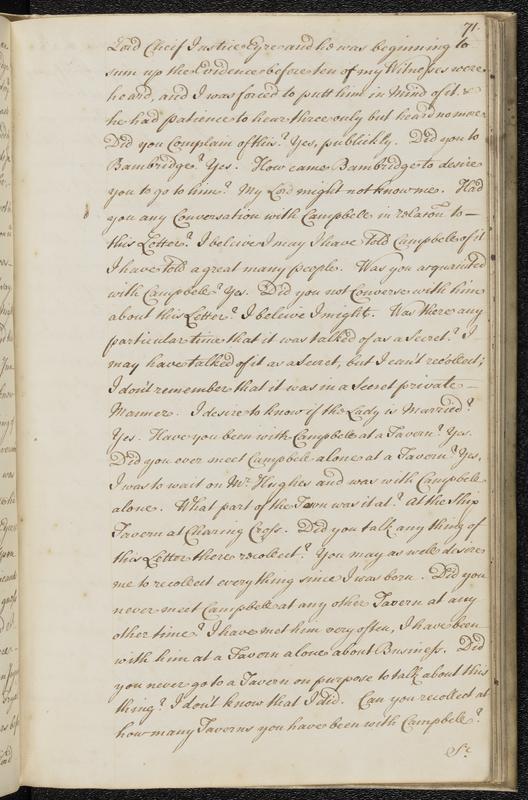 71.
Lord Cheif Justice Eyre and he was beginning to
sum up the Evidence before ten of my Witnesses were
heard, and I was forced to putt him in mind of it &
he had patience to hear three only but heard no more
Did you Complain of this? Yes, publickly. Did you to
Bambridge? Yes. How came Bambridge to desire
you to go to him? My Lord might not know me. Had
you any Conversation with Campbell in relacon to —
this Letter? I beleive I may I have told Campbell of it
I have told a great many people. Was you acquainted
with Campbell? Yes. Did you not Converse with him
about this Letter? I beleive I might. Was there any
particular time that it was talked of as a Secret? I
may have talked of it as a Secret, but I can't recollect;
I don't remember that it was in a Secret private —
Manner. I desire to know if the Lady is Married?
Yes. Have you been with Campbell at a Tavern? Yes.
Did you ever meet Campbell alone at a Tavern? Yes,
I was to wait on Mr. Hughes and was with Campbell
alone. What part of the Town was it at? At the Ship
Tavern at Charing Cross. Did you talk any thing of
this Letter there recollect? You may as well desire
me to recollect every thing since I was born. Did you
never meet Campbell at any other Tavern at any
other time? I have met him very often, I have been
with him at a Tavern alone about Business. Did
you never go to a Tavern on purpose to talk about this
thing? I don't know that I did. Can you recollect at
how many Taverns you have been with Campbell?
Sr.